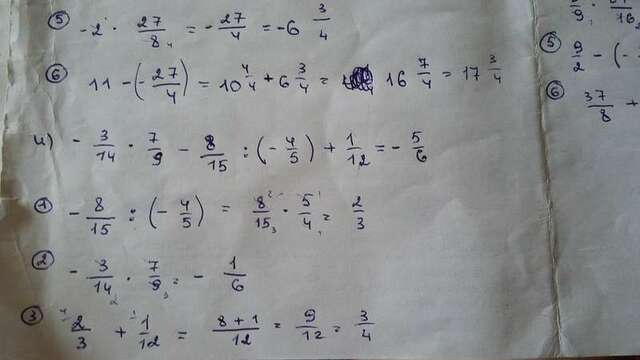 ⑤ -2 · 27/8 = -27/4 = -6 3/4
⑥ 11 - (-27/4) = 10 4/4 + 6 3/4 = 16 7/4 = 17 3/4
и) -3/14 · 7/9 - 8/15 : (-4/5) + 1/12 = -5/6
① -8/15 : (-4/5) = 8/15 · 5/4 = 2/3
② -3/14 · 7/9 = -1/6
③ 2/3 + 1/12 = 8+1/12 = 9/12 = 3/4
⑤ 9/2 - (-
⑥ 37/8 +